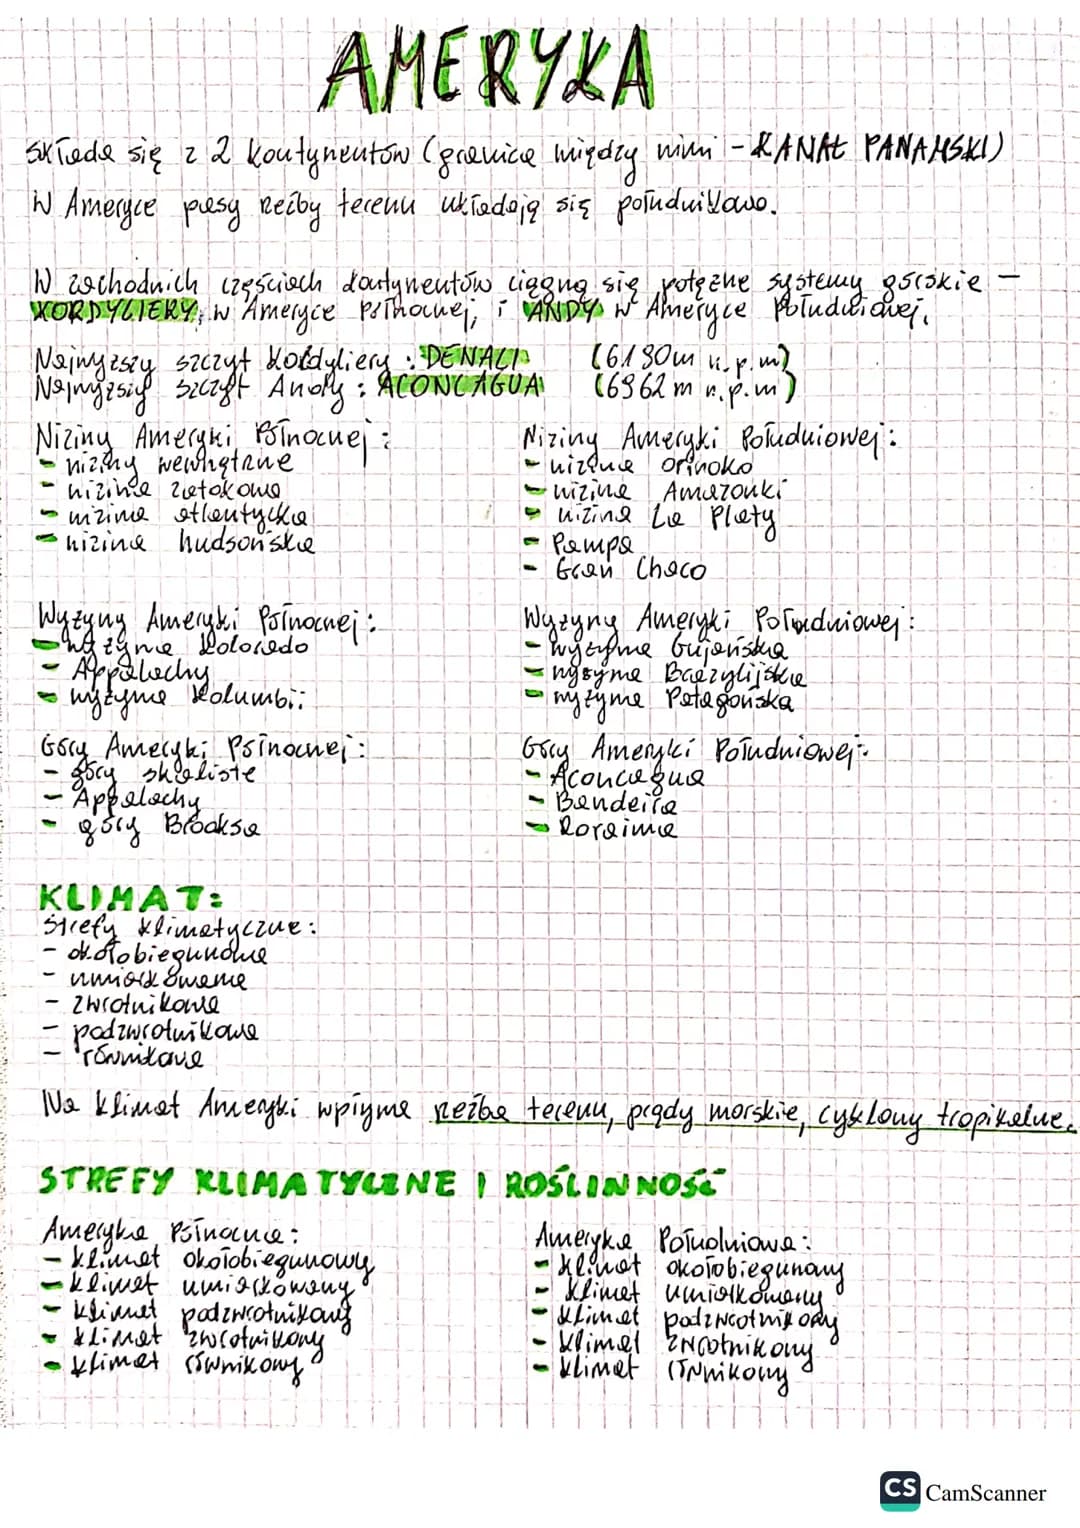 AMERYKA
składa się z 2 kontynentów (granica między nimi - KANAŁ PANAMSKI)
W Ameryce pasy rzeźby terenu układają się południkowo.
W zachodnich częściach kontynentów ciągną się potężne systemy górskie -
KORDYLIERY, w Ameryce Północnej, i ANDY w Ameryce Południowej.
Najwyższy szczyt kordyliery : DENALI (6190m n.p.m)
Najwyższy szczyt Andy : ACONCAGUA (6962m n.p.m)
Niziny Ameryki Północnej :
- niziny wewnątrzne
- nizina zatokowa
- nizina atlantycka
- nizina hudsońska
Niziny Ameryki Południowej :
- nizina orinoko
- nizina Amazonki
- nizina La Platy
- Pampa
- Gran Chaco
Wyżyny Ameryki Północnej :
- wyżyna Kolorado
- Appalachy
- wyżyna Kolumbii
Wyżyny Ameryki Południowej :
- wyżyna Gujańska
- wyżyna Brazylijska
- wyżyna Patagońska
Góry Ameryki Północnej :
- góry skaliste
- Appalachy
- góry Brooksa
Góry Ameryki Południowej :
- Aconcagua
- Bandeira
- Roraima
KLIMAT:
Strefy klimatyczne :
- okołobiegunowa
- umiarkowana
- zwrotnikowa
- podzwrotnikowa
- równikowa
Na klimat Ameryki wpływa rzeźba terenu, prądy morskie, cyklony tropikalne.
STREFY KLIMATYCZNE I ROŚLINNOŚĆ
Ameryka Północna :
- klimat okołobiegunowy
- klimat umiarkowany
- klimat podzwrotnikowy
- klimat zwrotnikowy
- klimat równikowy
Ameryka Południowa :
- klimat okołobiegunowy
- klimat umiarkowany
- klimat podzwrotnikowy
- klimat zwrotnikowy
- klimat równikowy
CS CamScanner